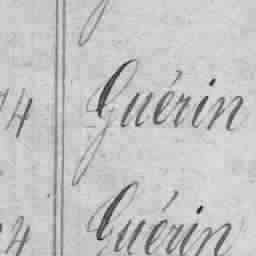 4 Guérin
4 Guérin